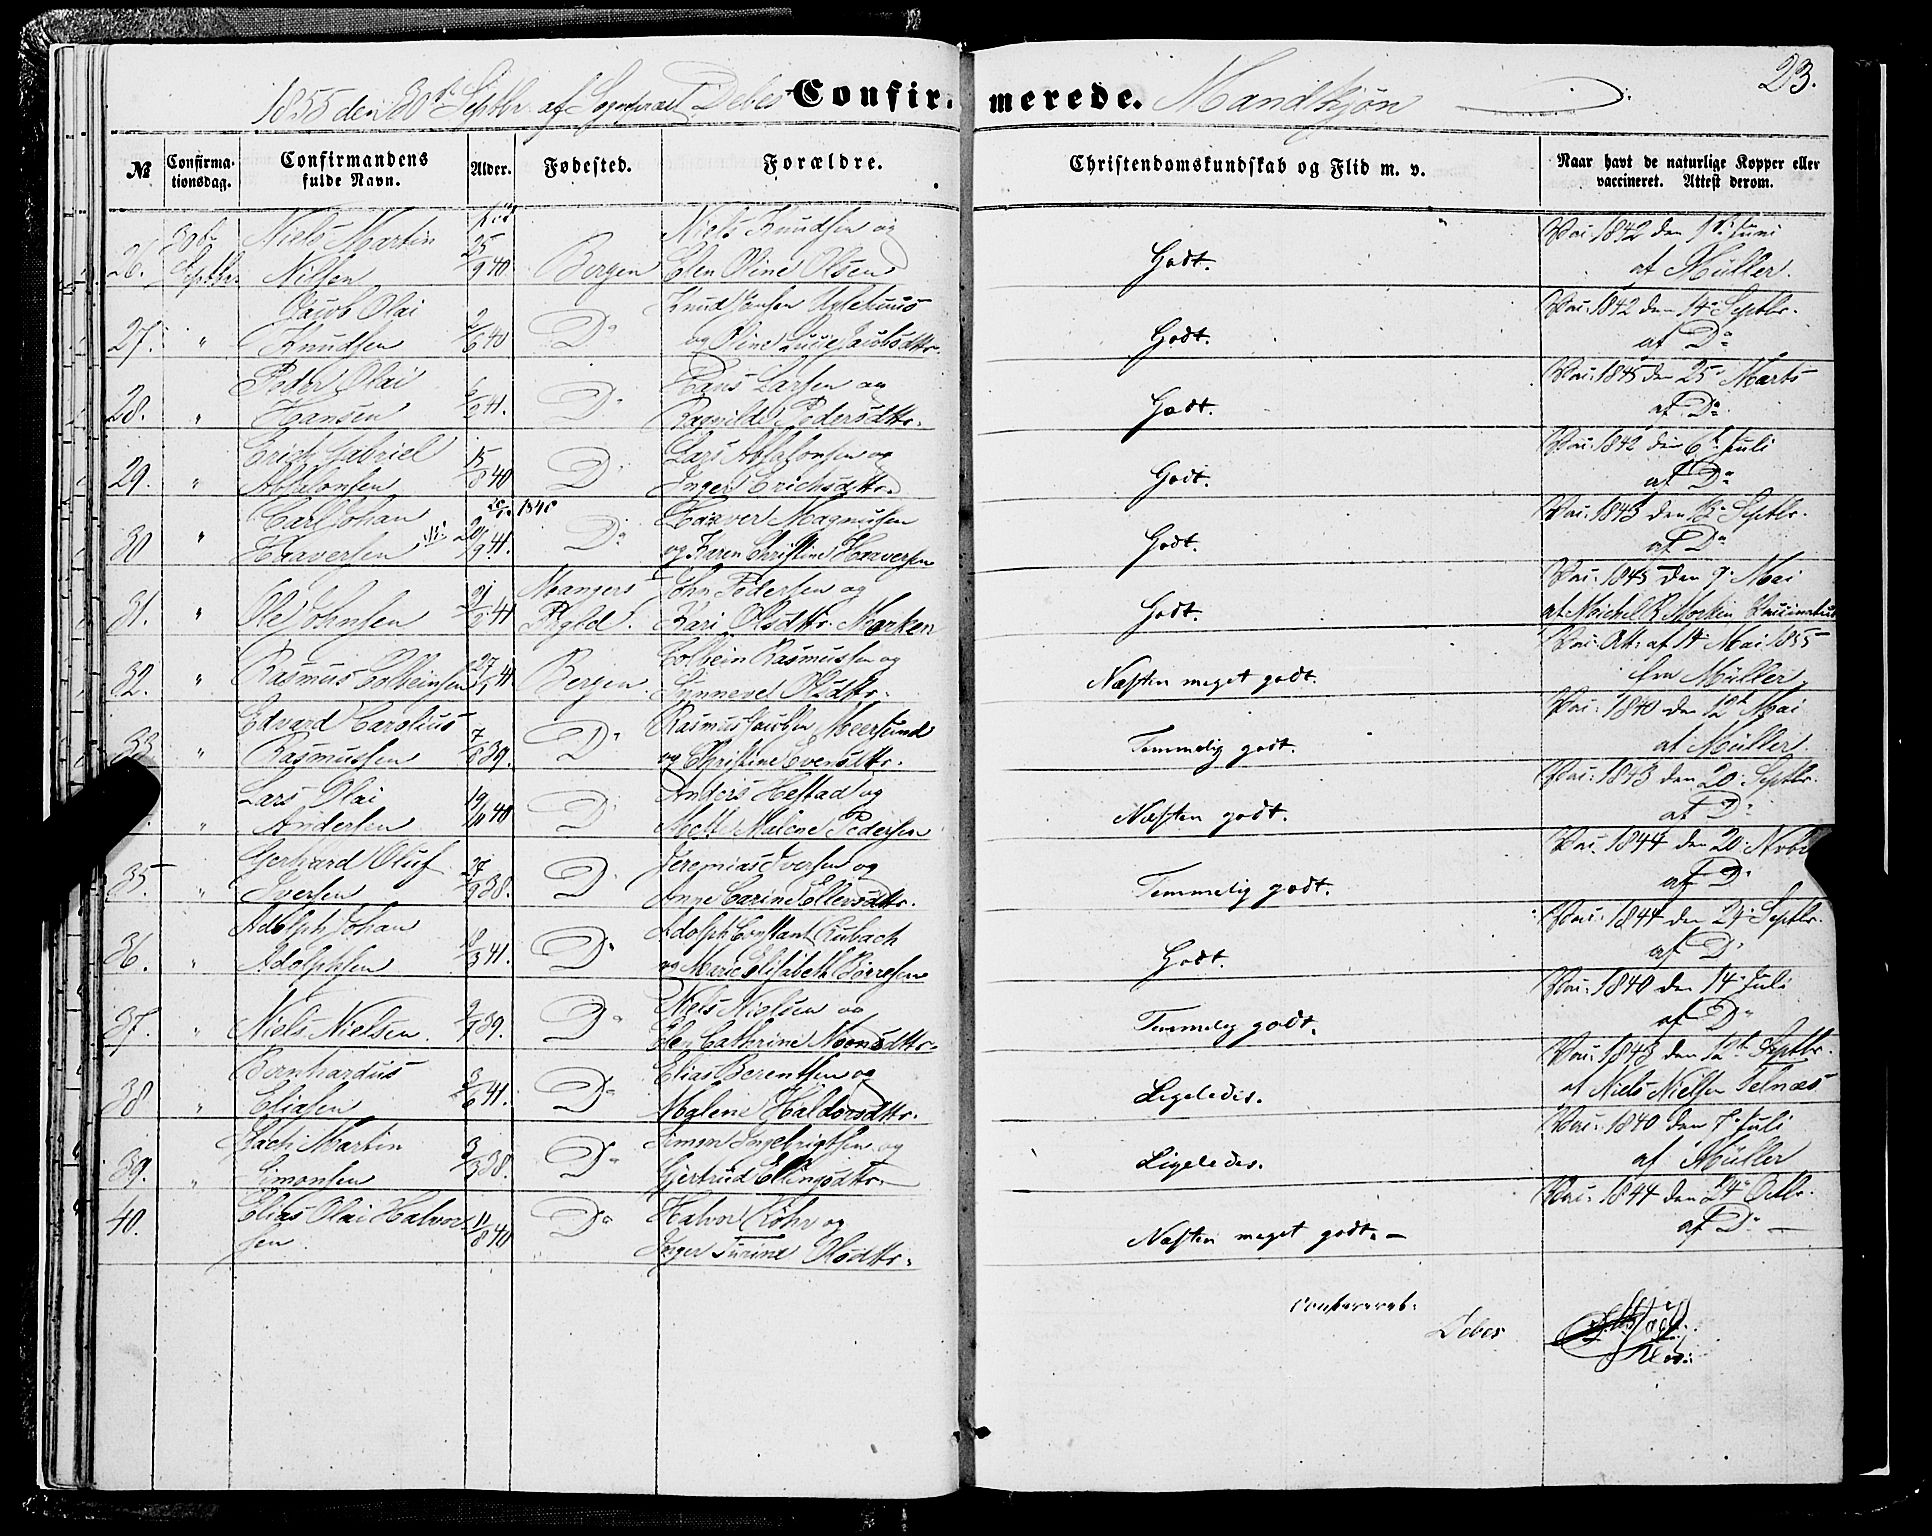 1855 den 30te Septbr. af Sognepræst Debes Confirmerede. Mandkjøn 23.
№ Confirmationsdag. Confirmandens fulde Navn. Alder. Fødested. Forældre. Christendomskundskab og Flid m. v. Naar havt de naturlige Kopper eller vaccineret. Attest derom.
26. 30te Septbr. Niels Martin Nilsen 25/9 40 Bergen Niels Knudsen og Elen Oline Olsen Godt. Vac: 1842 den 1te Juni af Müller.
27. " Jacob Olai Knudsen 40 Do Knud og Oline Jacobsdttr. Godt. Vac: 1842 den 14de Septbr. af Do
28. " Peder Olai Hansen 41. Do Hans Larsen og Ragnilde Pedersdttr. Godt. Vac: 1845 den 25 Marts af Do
29. " Erich Gabriel Absalonsen 15/8 40 Do Lars Absalonsen og Inger Erichsdttr. Godt. Vac: 1842 den 6te Juli af Do
30 " Carl Johan Haaversen 20/9 41. Do Haaver Magnusen og Karen Christine Haaversen Godt. Vac: 1843 den 13de Septbr. af Do
31. " Ole Johnsen 41 Mangers Prgld. John Pedersen og Kari Olsdttr. Marken Godt. Vac: 1845 den 9de Mai af Michel R. Vaccinateur
32. " Rasmus Colbeinsen 27/1 41. Bergen. Colbein Rasmussen og Synneve Olsdttr. Næsten meget godt. Vac: Att: af 14 Mai 1855 fra Müller.
33 " Edvard Carolius Rasmussen 7/8 39. Do Rasmus Jacobsen og Christine Iversdttr. Temmelig godt. Vac: 1840 den 12te Mai af Müller.
" Lars Olai Andersen 19/10 40 Do Anders Hestad og Mette Malene Pedersen Næsten godt. Vac: 1843 den 20de Septbr. af Do
35. " Gerhard Oluf Iversen 27/9 38. Do Jeremias Iversen og Anne Carine Ellersdttr. Temmelig godt. Vac: 1844 den 20de af Do
36. " Adolph Johan Adolphsen 41. Do Adolph Constant Rubach og Marie Elisabeth Børresen Godt. Vac: 1844 den Septbr. af Do
37. " Niels Nielsen 39. Do Niels Nielsen og Elen Cathrine Monsdttr. Temmelig godt. Vac: 1840 den 14de Juli af Do
38 " Bernhardus Eliasen 3/6 41. Do Elias Berentsen og Malene Haldorsdttr. Ligeledes. Vac: 1843 den 12te Septbr. af Niels Nielsen Telnæs
39. " Martin Simonsen 3/3 38. Do Simon Ingebrigtsen og Gjertrud Ellingsdttr. Ligeledes. Vac: 1840 den 7de Juli af Müller
40. Elias Olai Halvorsen. 11/8 40 Do Halvor Røhr og Inger Surine Olsdttr. Næsten meget godt. Vac: 1844 den 24de Octbr. af Do
Debes